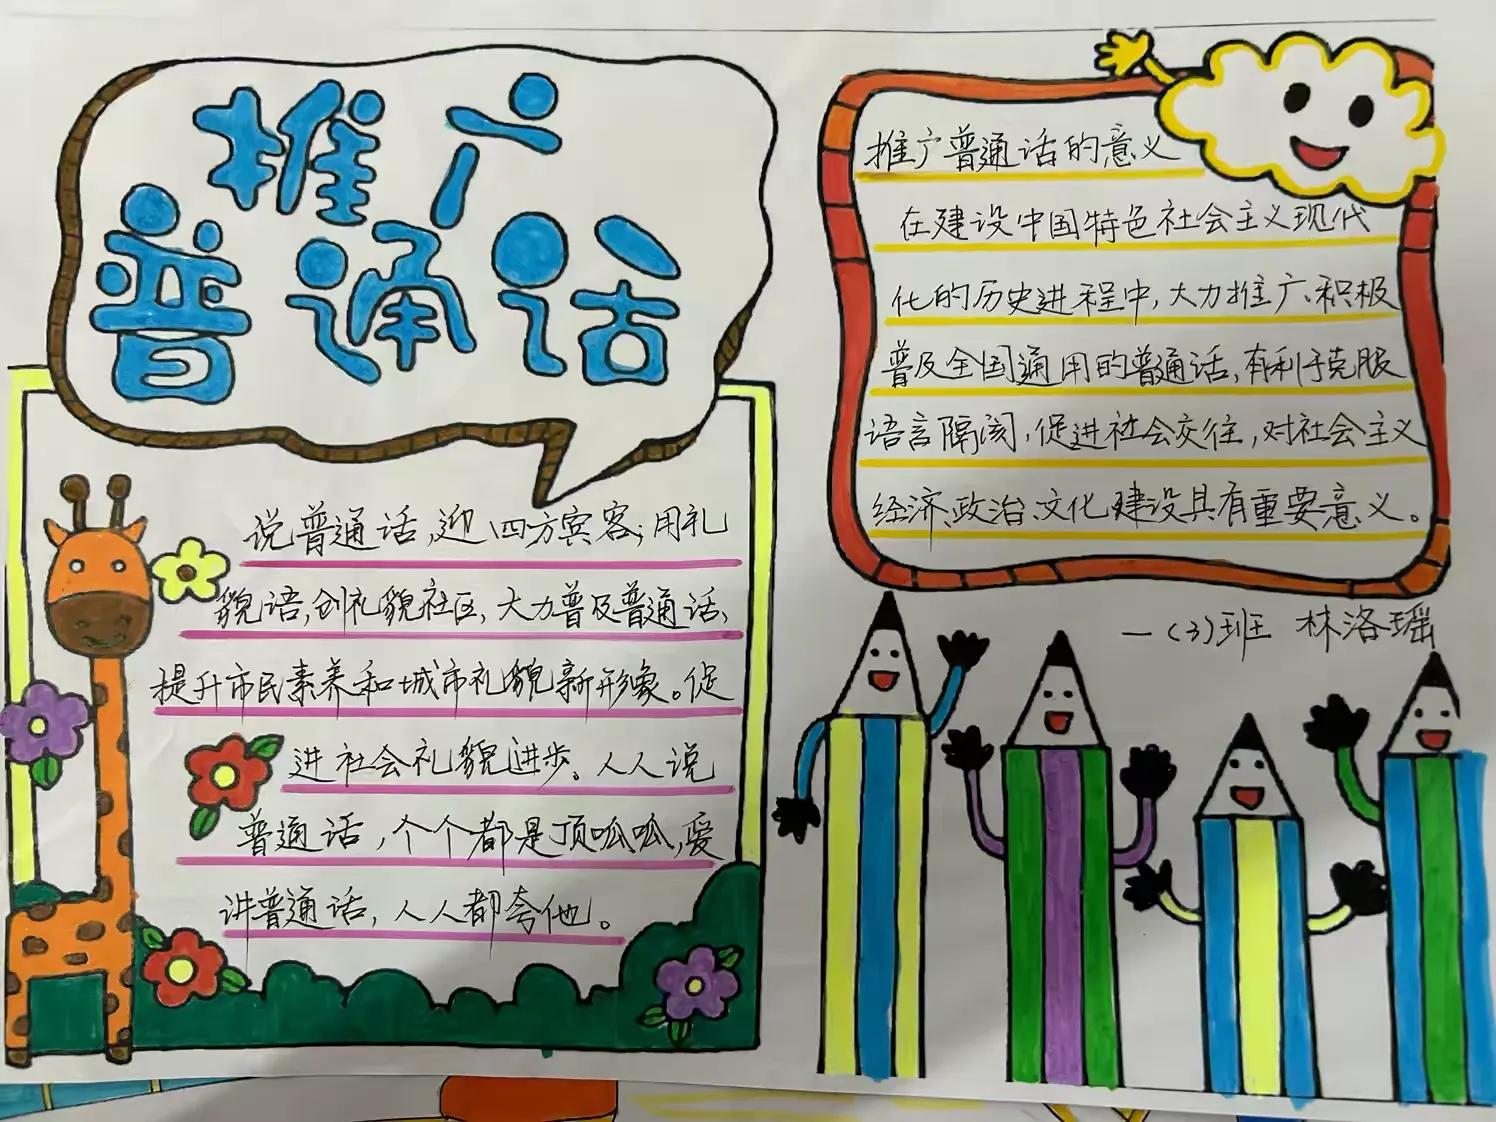 推广
普通话
说普通话,迎四方宾客;用礼
貌语,创礼貌社区,大力普及普通话,
提升市民素养和城市礼貌新形象。促
进社会礼貌进步。人人说
普通话,个个都是顶呱呱,爱
讲普通话,人人都夸他。
推广普通话的意义
在建设中国特色社会主义现代
化的历史进程中,大力推广、积极
普及全国通用的普通话,有利于克服
语言隔阂,促进社会交往,对社会主义
经济、政治、文化建设具有重要意义。
一(3)班 林洛瑶